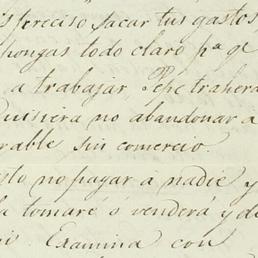 es preciso sacar tus gastos
pongas todo claro pa. qe
a trabajar, Pepe trahera
Quisiera no abandonar a
rable sin comercio
sto no pagar á nadie y
la tomaré ó venderá y de
Examina con